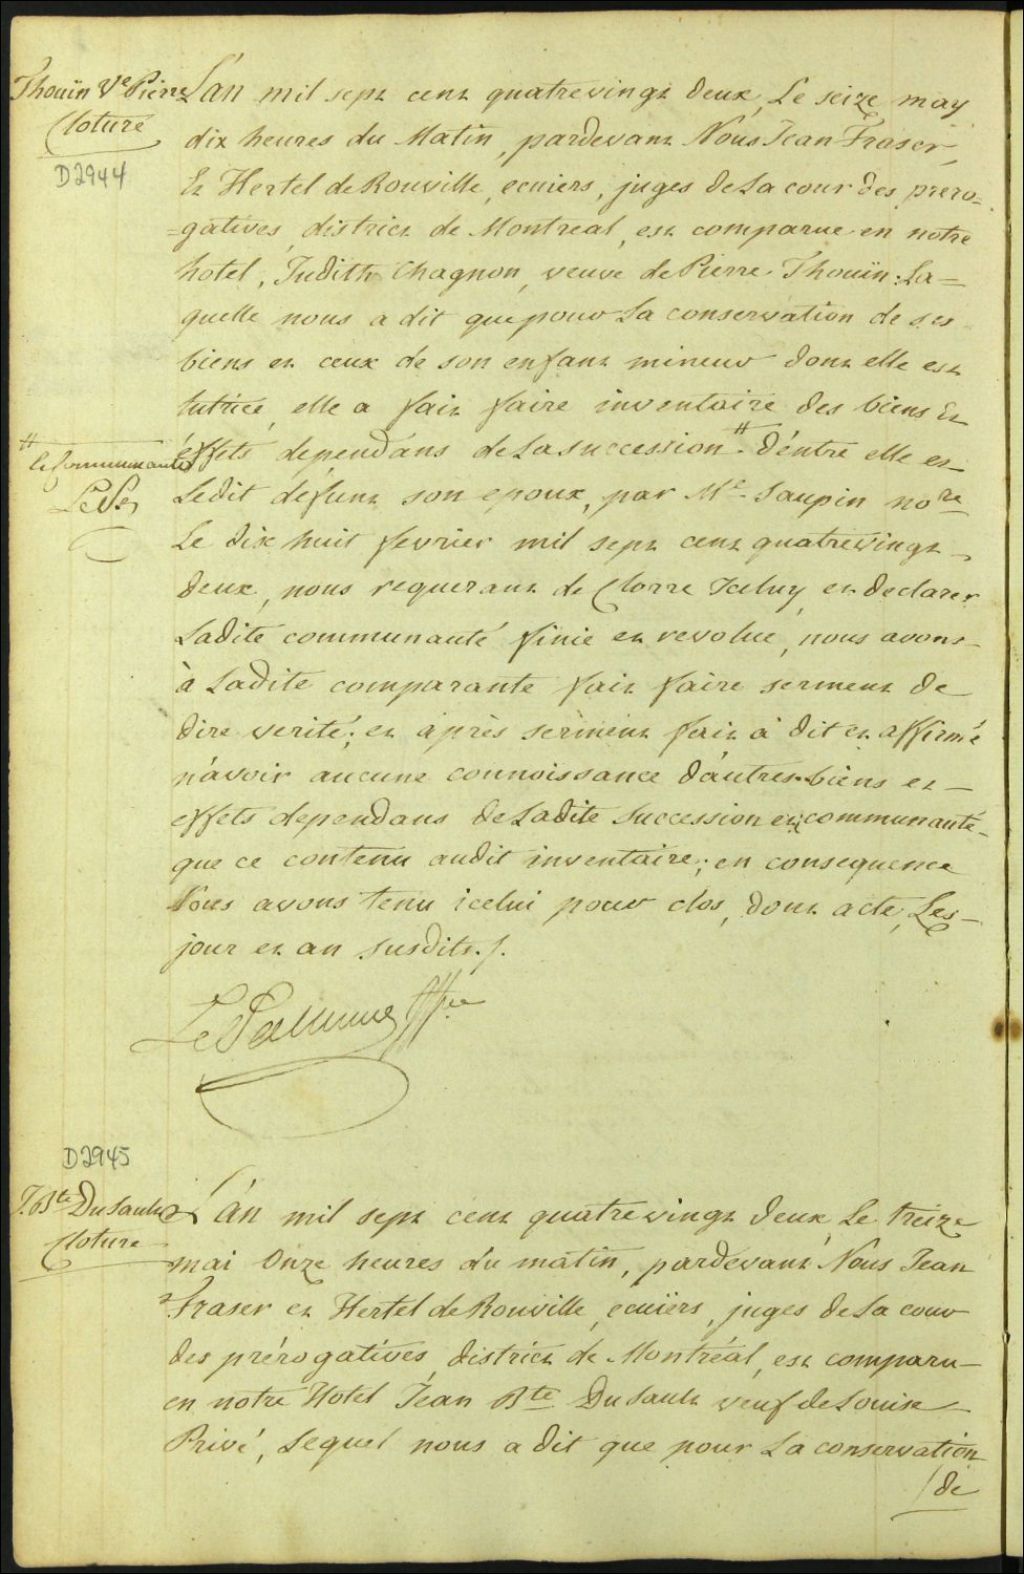 Thouin Ve Pierre
Cloture
D2944
L'an mil sept cent quatrevingt deux, Le seize may
dix heures du Matin, pardevant Nous Jean Fraser
Et Hertel de Rouville, ecuiers, juges de La cour des prero=
=gatives, district de Montreal, est comparue en notre
hotel, Judith Chagnon, veuve de Pierre Thouin. La=
quelle nous a dit que pour La conservation de ses
biens et ceux de son enfant mineur dont elle est
tutrice, elle a fait faire inventaire des biens Et
éffets dependans de La succession # d'entre elle et
# 
le communauté
Ledit défunt son epoux, par Me. Saupin nore
Le dix huit fevrier mil sept cent quatrevingt
deux, nous requerant de Clorre Iceluy, et declarer
Ladite communauté finie et revolue, nous avons
à Ladite comparante fait faire serment de
dire verité; et àprès serment fait à dit et affirmé
n'avoir aucune connoissance d'autres biens et
effets dependans de Ladite Succession et communauté
que ce contenu audit inventaire; en consequence
Nous avons tenu icelui pour clos, dont acte, Les
jour et an susdits./.
LePallieur Gffier
D2945
J. Bte DuSault
Cloture
L'án mil sept cent quatrevingt deux, Le treize
mai Onze heures du matin, pardevant Nous Jean
Fraser et Hertel de Rouville, ecuiers, juges de La cour
des prérogatives, district de Montréal, est comparu
en notre Hotel Jean Bte DuSault veuf de Louise
Privé, Lequel nous a dit que pour La conservation
/de